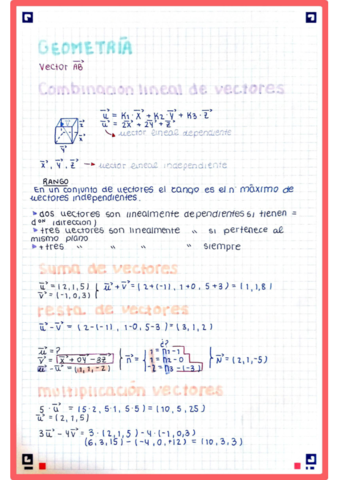 GEOMETRÍA
Vector AB
Combinacion lineal de vectores
u = K1·X + K2·Y + K3·Z
u = 2X + 2Y + Z
vector lineal dependiente
X, Y, Z → vector lineal independiente
RANGO
En un conjunto de vectores el rango es el nº máximo de
vectores independientes.
➤ dos vectores son linealmente dependientes si tienen =
(direccion)
➤ tres vectores son linealmente " si pertenece al
mismo plano
➤ +tres " " " siempre
Suma de vectores
u = (2,1,5)
v = (-1,0,3)
u + v = (2+(-1), 1+0, 5+3) = (1,1,8)
resta de vectores
u - v = (2-(-1), 1-0, 5-3) = (3,1,2)
¿?
u = ?
v = X + 0Y - 3Z
u - v = (1,1,-2)
n =
1 = n1 - 1
1 = n2 - 0
-2 = n3 - (-3)
N = (2,1,-5)
multiplicación vectores
5·u = (5·2, 5·1, 5·5) = (10,5,25)
u = (2,1,5)
3u - 4v = 3·(2,1,5) - 4·(-1,0,3)
(6,3,15) - (-4,0,+12) = (10,3,3)